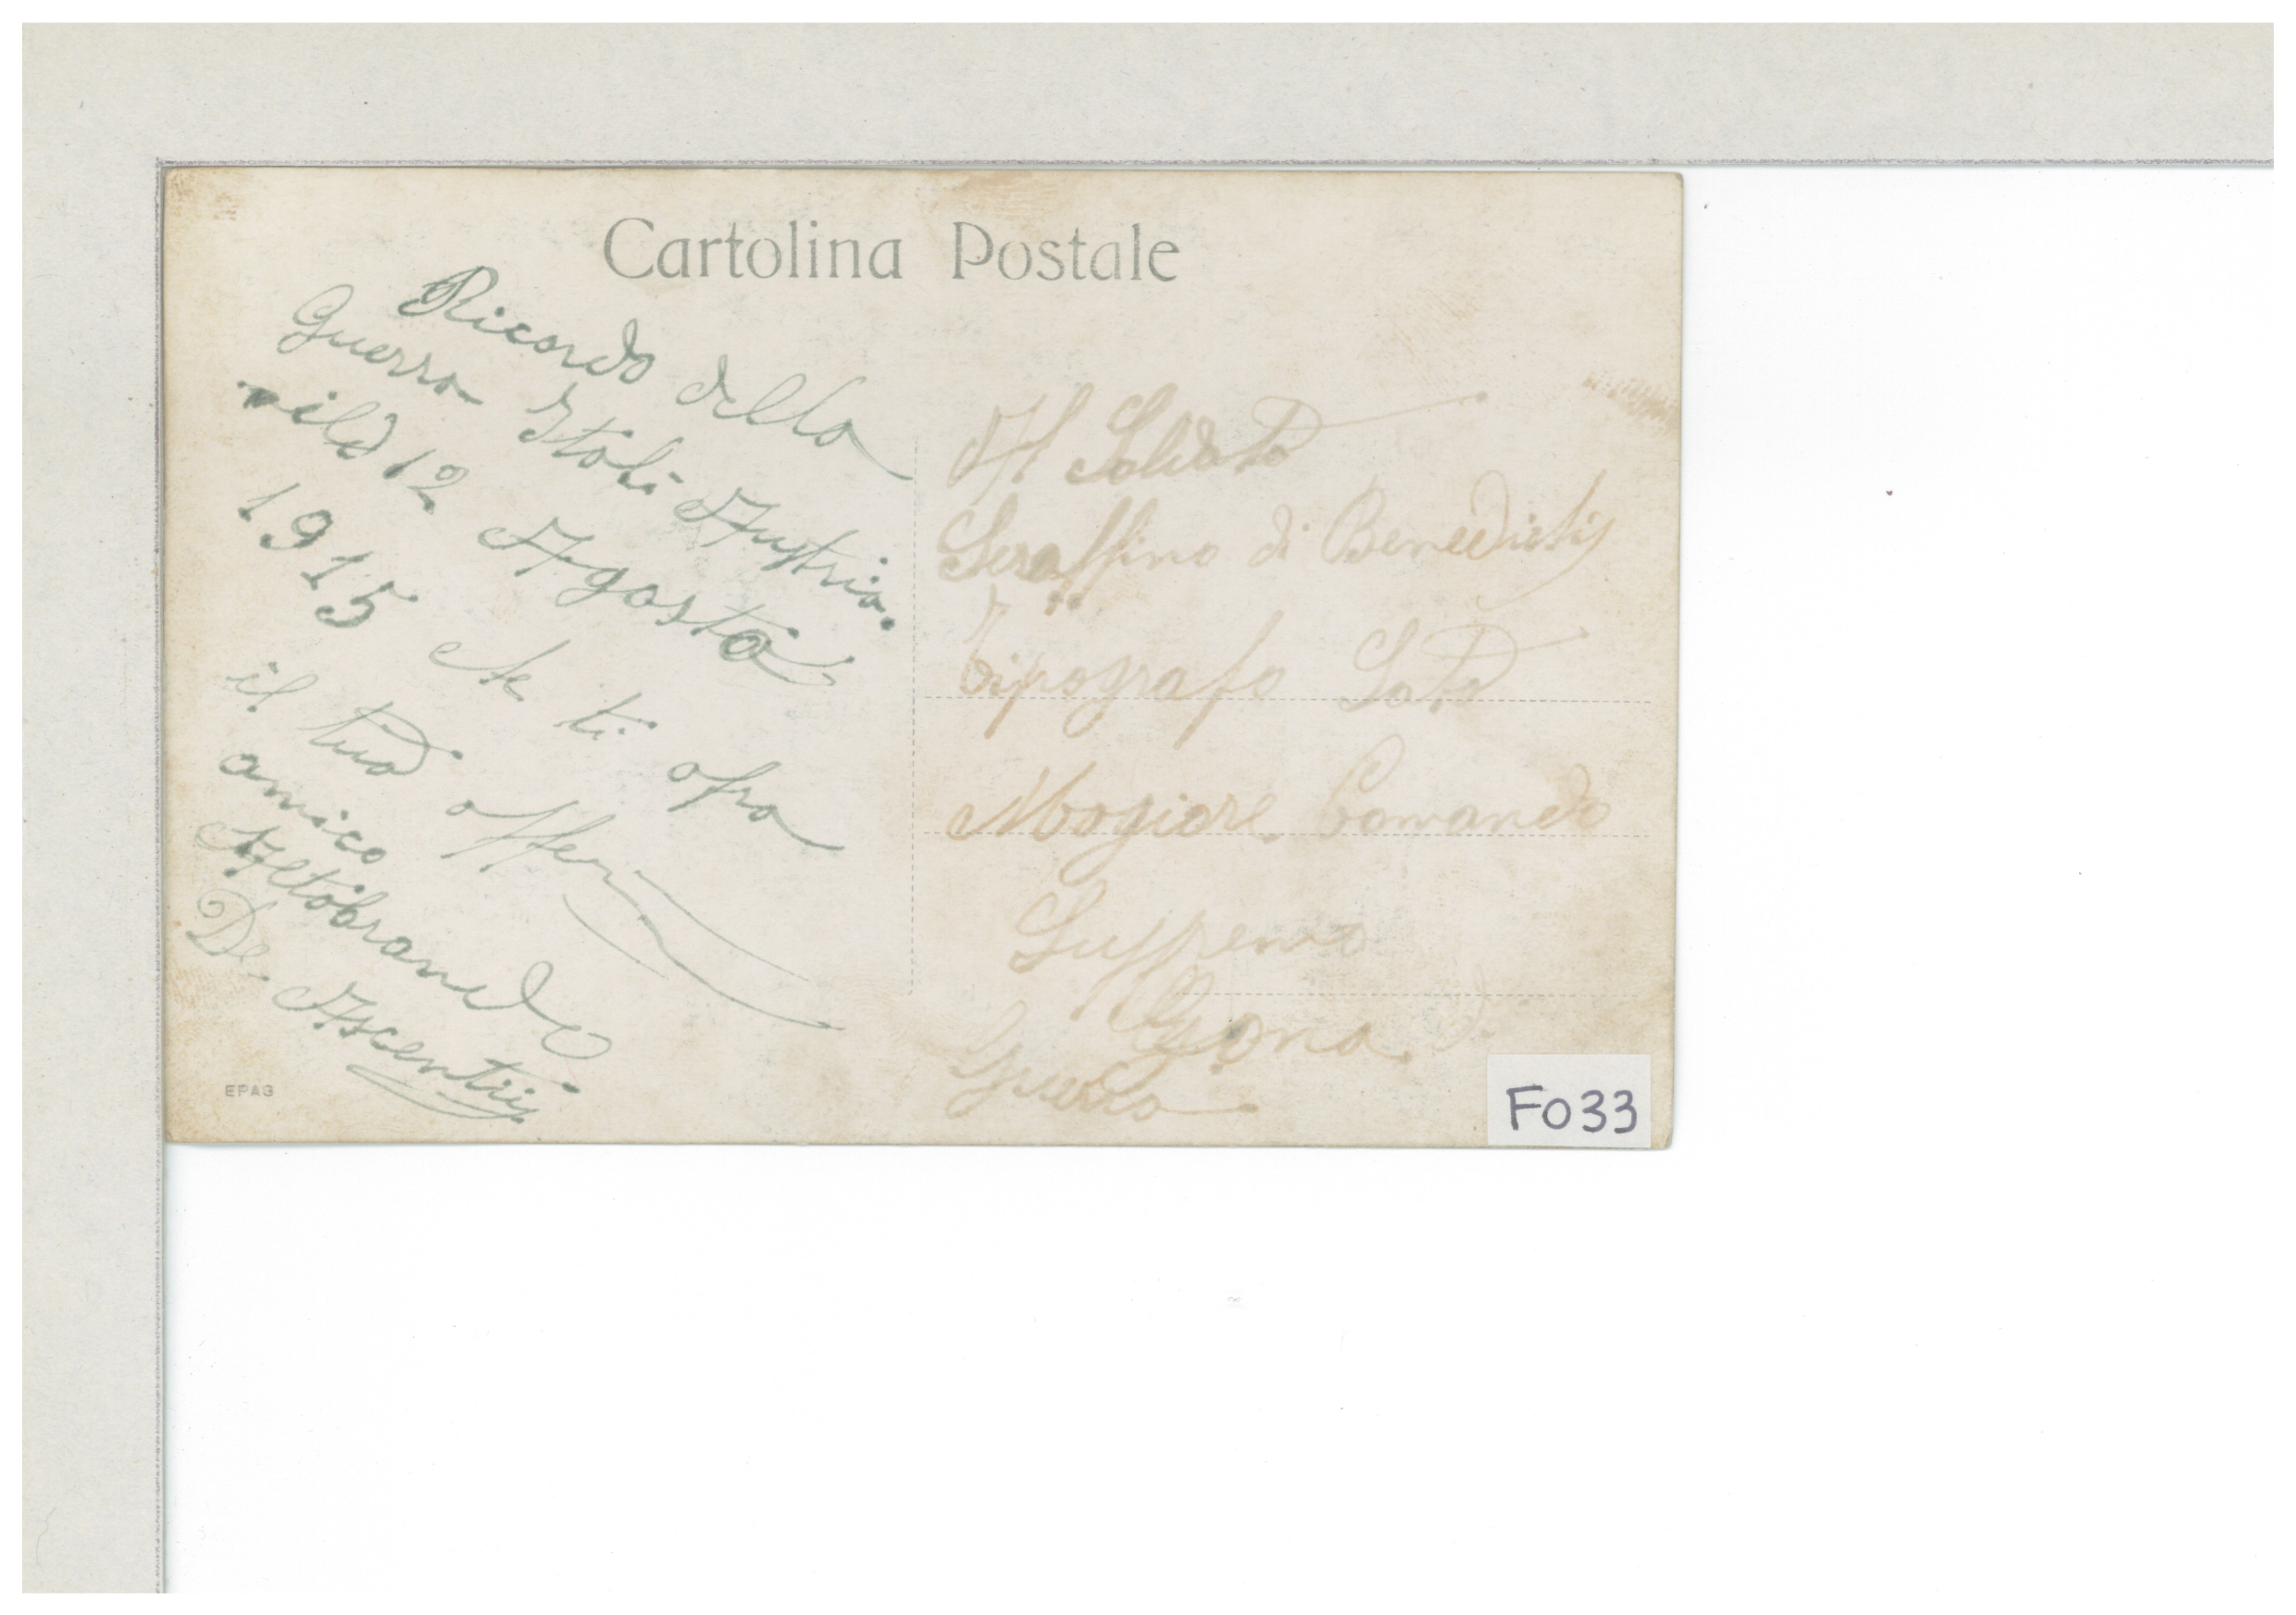 Cartolina Postale
Ricordo della
Guerra Itali Austria.
il dì 12 Agosto
1915 che ti ofra
il tuo affez
amico
Altobrando
De Ascentiis
EPAG
Al Soldato
Seraffino di Benedictis
Tipografo Sato
Magiore Comando
Suppremo
Zona di
Guerra
F033